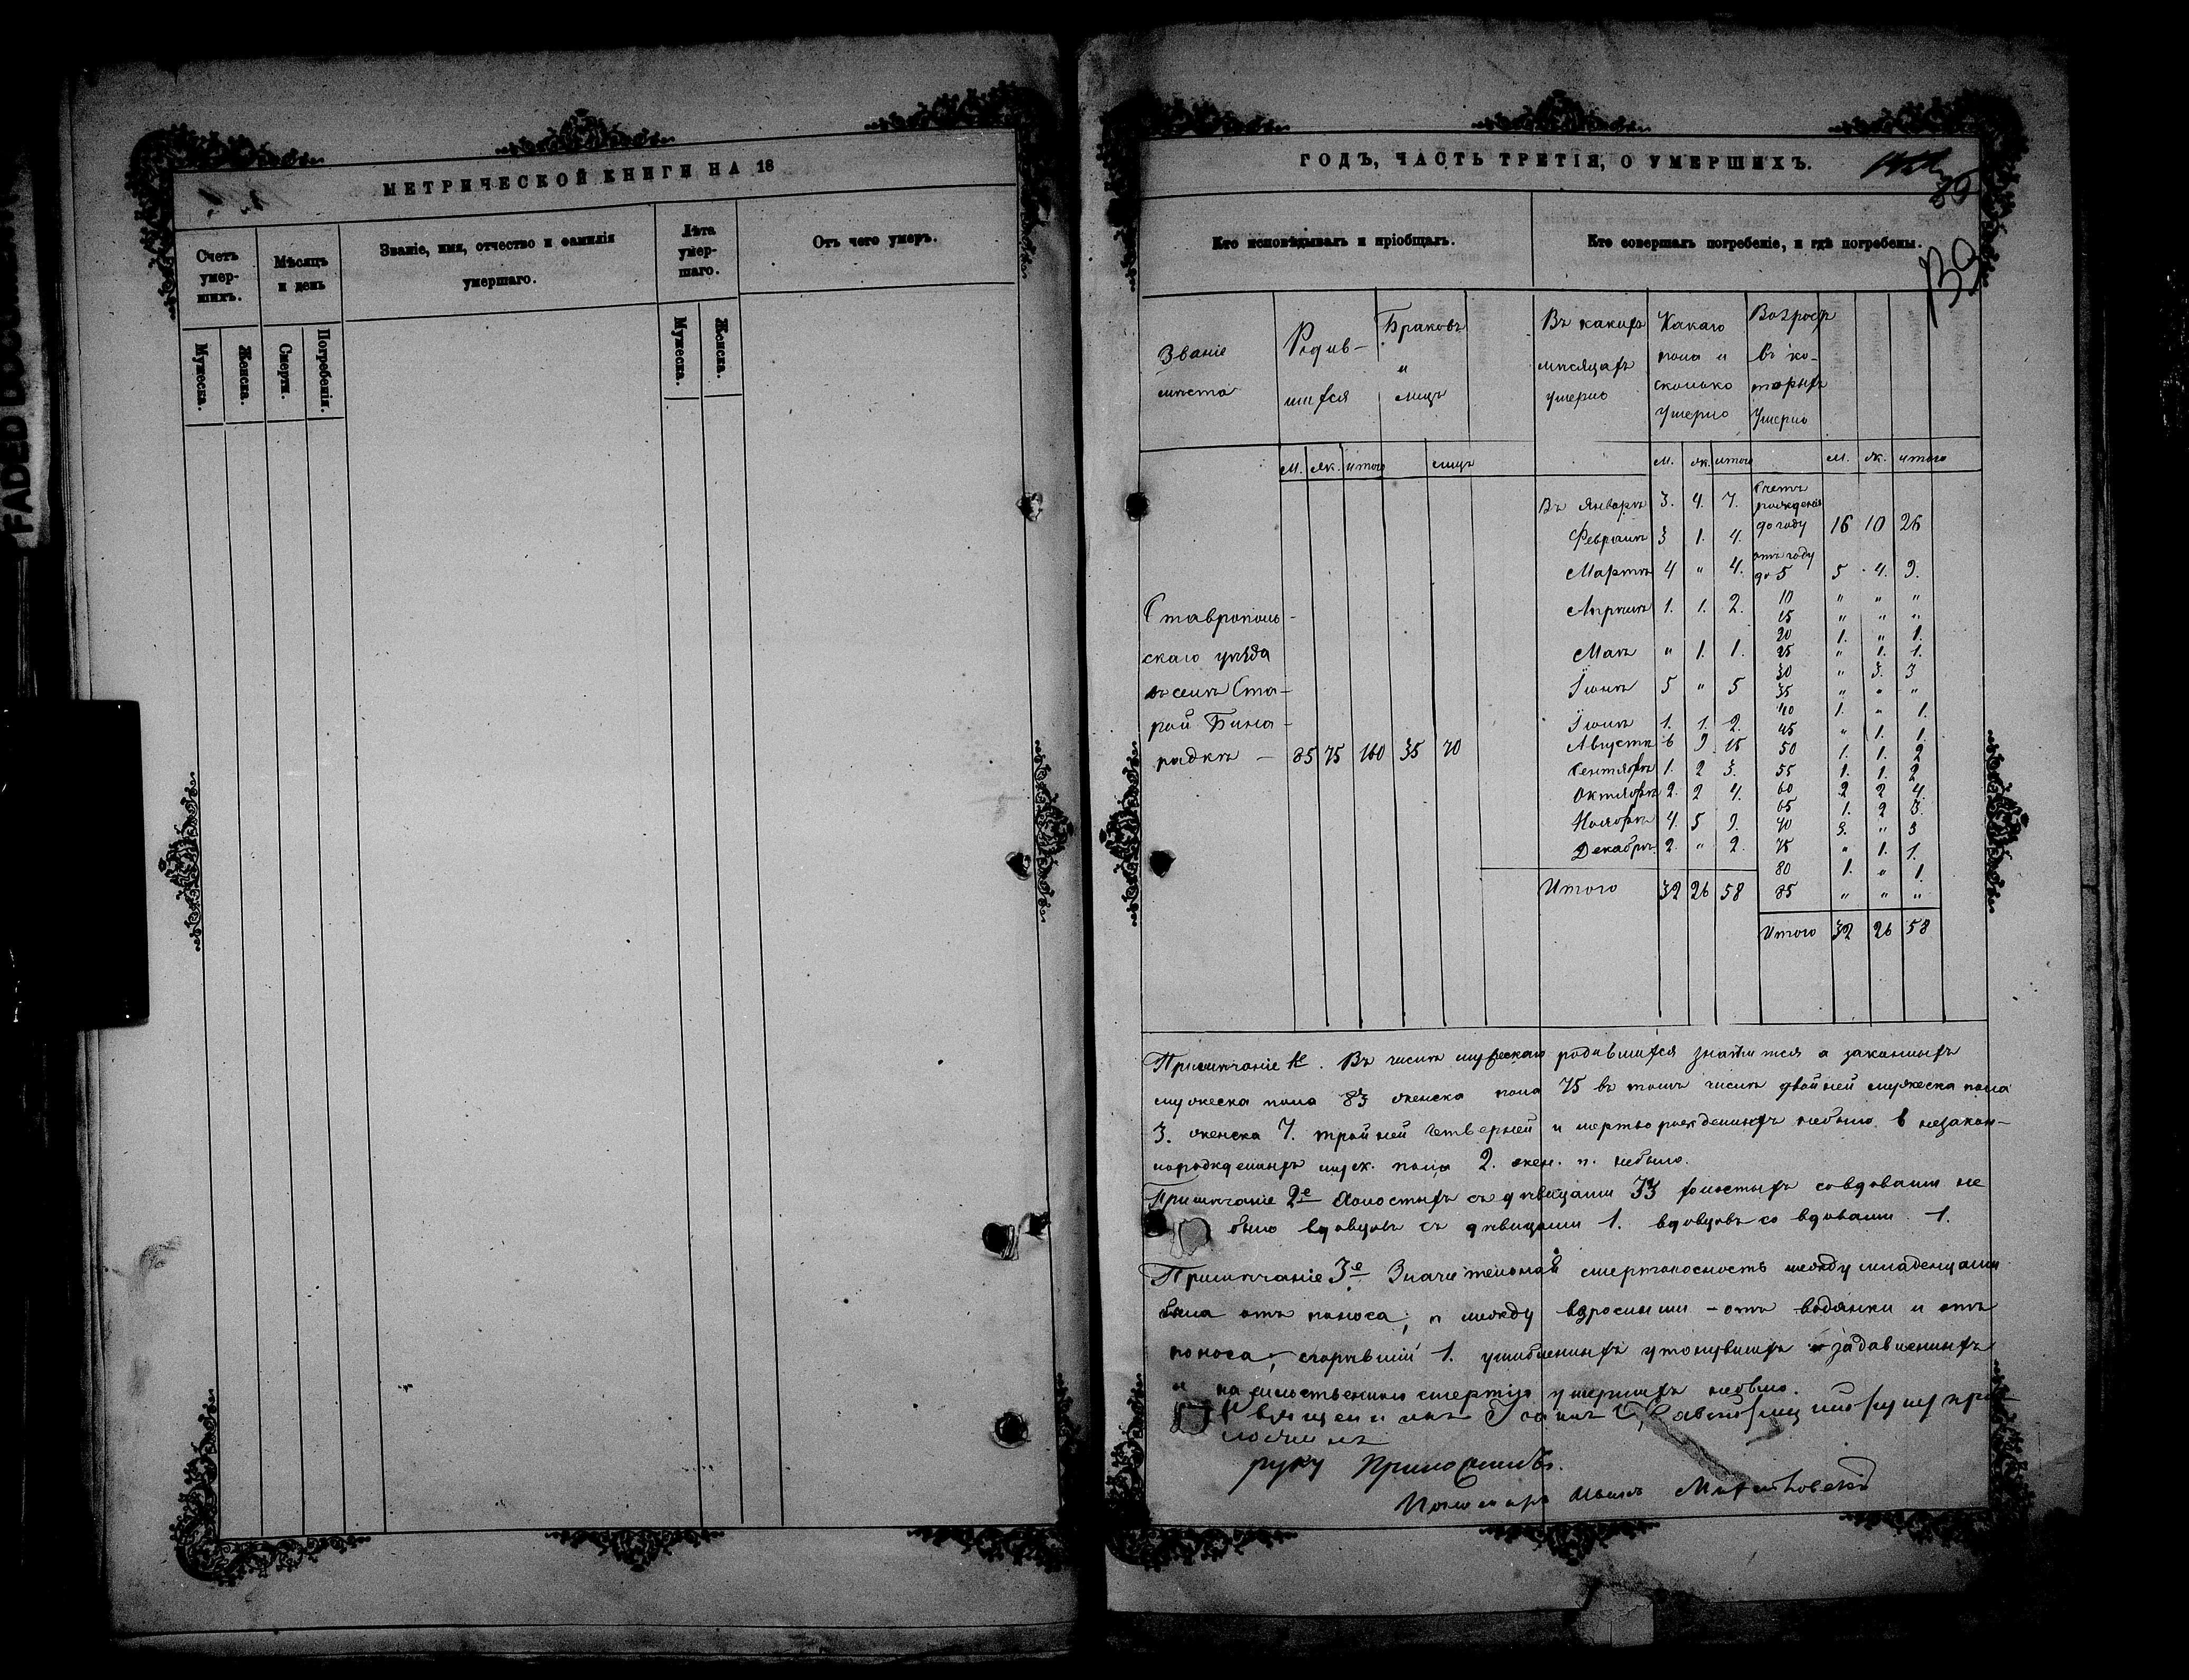 FADED DOCUMENT
МЕТРИЧЕСКОЙ КНИГИ НА 18
Счетъ умер-шихъ.
Мѣсяцъ и день
Званіе, имя, отчество и фамилія умершаго.
Лѣта умер-шаго.
Отъ чего умеръ.
Мужеска.
Женска.
Смерти.
Погребенія.
Мужеска.
Женска.
ГОДЪ, ЧАСТЬ ТРЕТІЯ, О УМЕРШИХЪ.
39
Кто исповѣдывалъ и пріобщалъ.
Кто совершалъ погребеніе, и гдѣ погребены.
Званіе мѣста
Родив-шихся
Браковъ и лицъ
Въ какихъ мѣсяцахъ умерло
Какаго пола и сколько умерло
Возрастъ въ ко-торыхъ умерло
М. ж. итого лицъ
М. ж. итого
М. ж. итого
Ставрополь-
скаго уѣзда
въ селѣ Ста-
рой Бина-
радкѣ — 85 75 160 35 70
Въ Январѣ 3. 4. 7.
Февралѣ 3 1. 4.
Мартѣ 4 " 4.
Апрѣлѣ 1. 1. 2.
Маѣ " 1. 1.
Іюнѣ 5 " 5
Іюлѣ 1. 1. 2.
Августѣ 6 9. 15
Сентябрѣ 1. 2 3.
Октябрѣ 2. 2 4.
Ноябрѣ 4. 5 9.
Декабрѣ 2. " 2.
Итого 32 26 58
рожденія
до году 16 10 26
отъ году
до 5 5 4. 9.
10 " " "
15 " " "
20 1. " 1.
25 " 1. 1.
30 " 3. 3
35 " " "
40 1. " 1.
45 " 1. 1.
50 1. 1. 2
55 1. 1. 2
60 2 2 4.
65 1. 2 3.
70 3. " 3
75 " 1. 1.
80 1. " 1.
85 " " "
Итого 32 26 58
Примѣчаніе 1е. Въ числѣ родившихся значится а законныхъ
мужеска пола 83 женска пола 75 въ томъ числѣ двойней мужеска пола
3. женска 7. тройней четверней и мертворожденныхъ небыло. в незакон-
норожденныхъ муж. пола 2. жен. п. небыло.
Примѣчаніе 2е Холостыхъ съ дѣвицами 33 холостыхъ совдовами не
было вдовцовъ съ дѣвицами 1. вдовцовъ со вдовами 1.
Примѣчаніе 3е Значительная смертоносность между младенцами
была отъ поноса, и между взрослыми – отъ водянки и отъ
поноса, сгорѣвшій 1. ушибленныхъ утонувшихъ задавленныхъ
и насильственною смертію умершихъ небыло.
Священникъ Іоаннъ
руку приложилъ.
Пономарь Иванъ